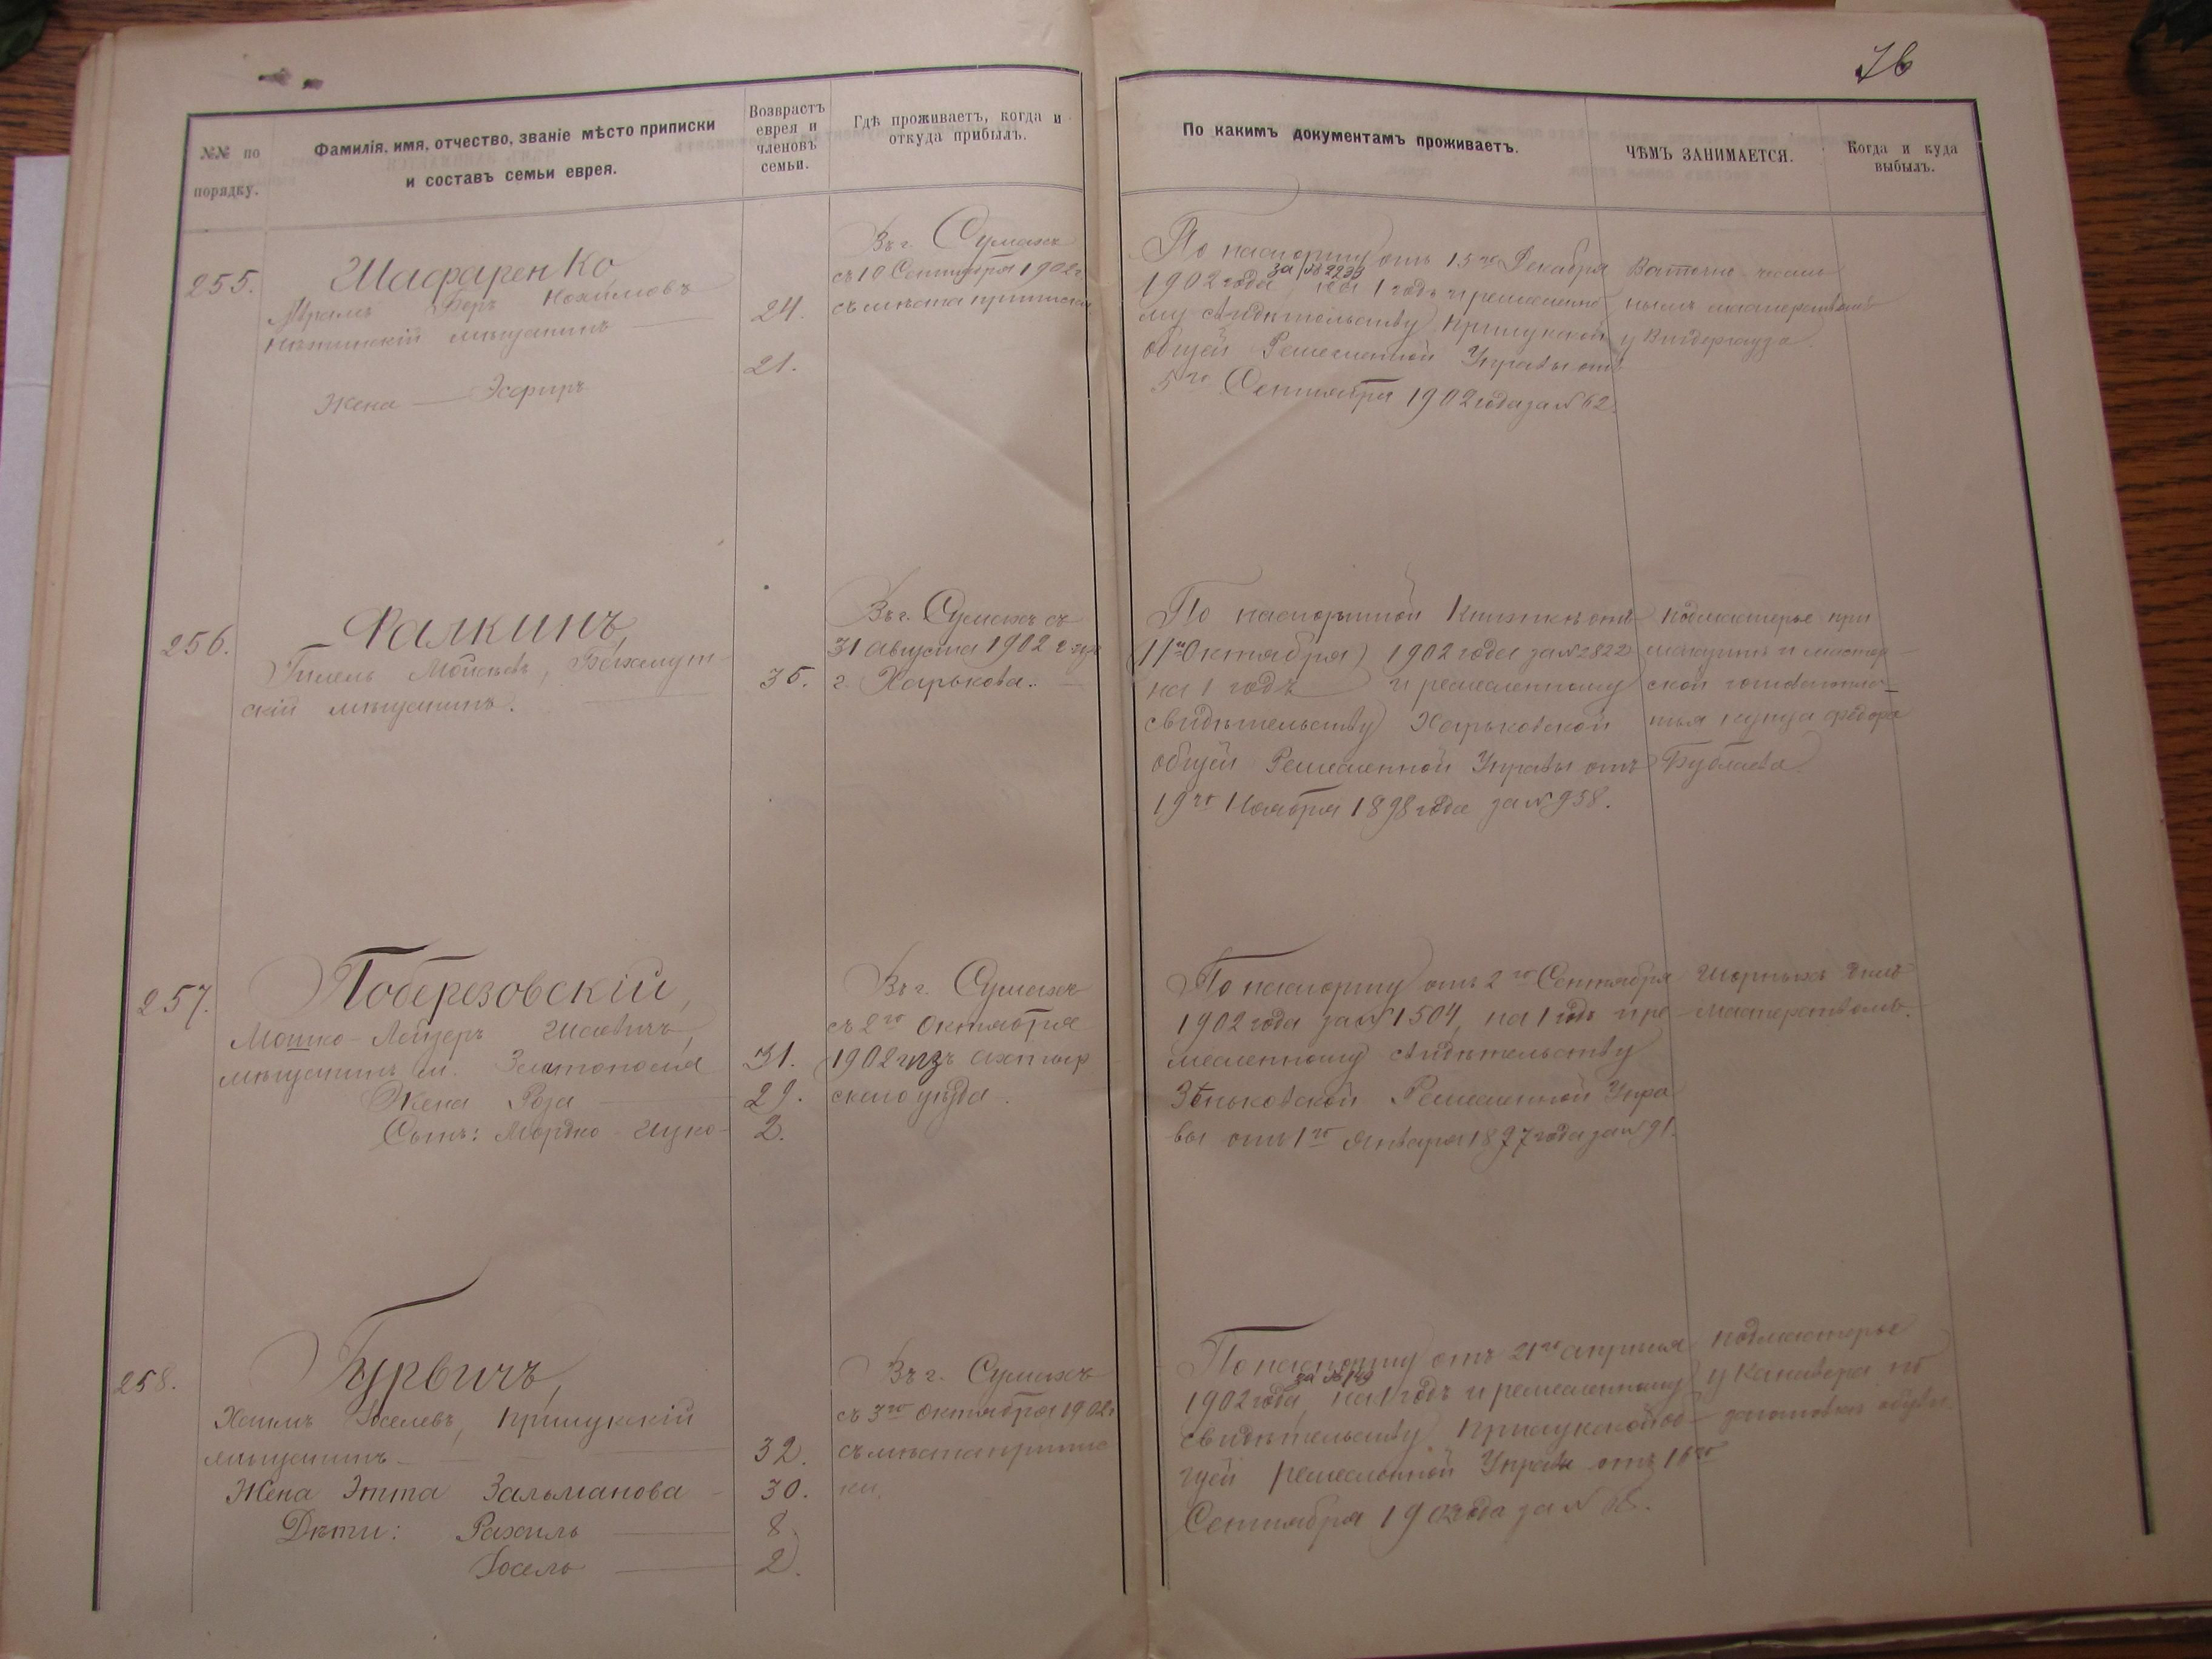 76
№№ по порядку.
Фамилія, имя, отчество, званіе мѣсто приписки
и составъ семьи еврея.
Возврастъ
еврея и
членовъ
семьи.
Гдѣ проживаетъ, когда и
откуда прибылъ.
По какимъ документамъ проживаетъ.
ЧѢМЪ ЗАНИМАЕТСЯ.
Когда и куда
выбылъ.
255.
Шафаренко
Абрамъ Беръ Нохимовъ
Нѣжинскій мѣщанинъ
24.
Жена Эсфирь
21.
Въ г. Сумахъ
съ 10 Сентября 1902 г.
съ мѣста приписки
По паспорту отъ 15го Декабря
1902 года за № 2233 на 1 годъ и ремесленно-
му свидѣтельству Прилукской
общей Ремесленной Управы отъ
5го Сентября 1902 года за № 62.
Ваточно-чесаль
нымъ мастерствомъ
у Видергауза.
256.
Фалкинъ,
Гилель Мойсѣевъ, Бахмут-
скій мѣщанинъ.
35.
Въ г. Сумахъ съ
31 Августа 1902 г. изъ
г. Харькова.
По паспортной Книжкѣ отъ
11го Октября 1902 года за № 2822
на 1 годъ и ремесленному
свидѣтельству Харьковской
общей Ремесленной Управы отъ
19го Ноября 1898 года за № 958.
Подмастерье при
магазинѣ и мастер-
ской готоваго пла-
тья купца Федора
Бублаева.
257.
Поберезовскій,
Мошко-Лейзеръ
мѣщанинъ м. Златополя
31.
Жена Роза
29.
Сынъ: Мордко-Ицко
2.
Въ г. Сумахъ
съ 2го Октября
1902 г. изъ Ахтыр
скаго уѣзда.
По паспорту отъ 2го Сентября
1902 года за № 1504, на 1 годъ и ре-
месленному свидѣтельству
Зѣньковской Ремесленной Упра
вы отъ 1го Января 1897 года за № 91.
Шорныхъ дѣлъ
мастерствомъ.
258.
Гурвичъ,
Хаимъ Іоселевъ, Прилукскій
мѣщанинъ
32.
Жена Этта Зальманова
30.
Дѣти: Рахиль
8
Іосель
2.
Въ г. Сумахъ
съ 3го Октября 1902 г.
съ мѣста припис
ки.
По паспорту отъ 21го Апрѣля
1902 года за № 149 на 1 годъ и ремесленному
свидѣтельству Прилукской об-
щей ремесленной Управы отъ 16го
Сентября 190 года за №
Подмастерье
у Кантера по
заготовкѣ обуви.